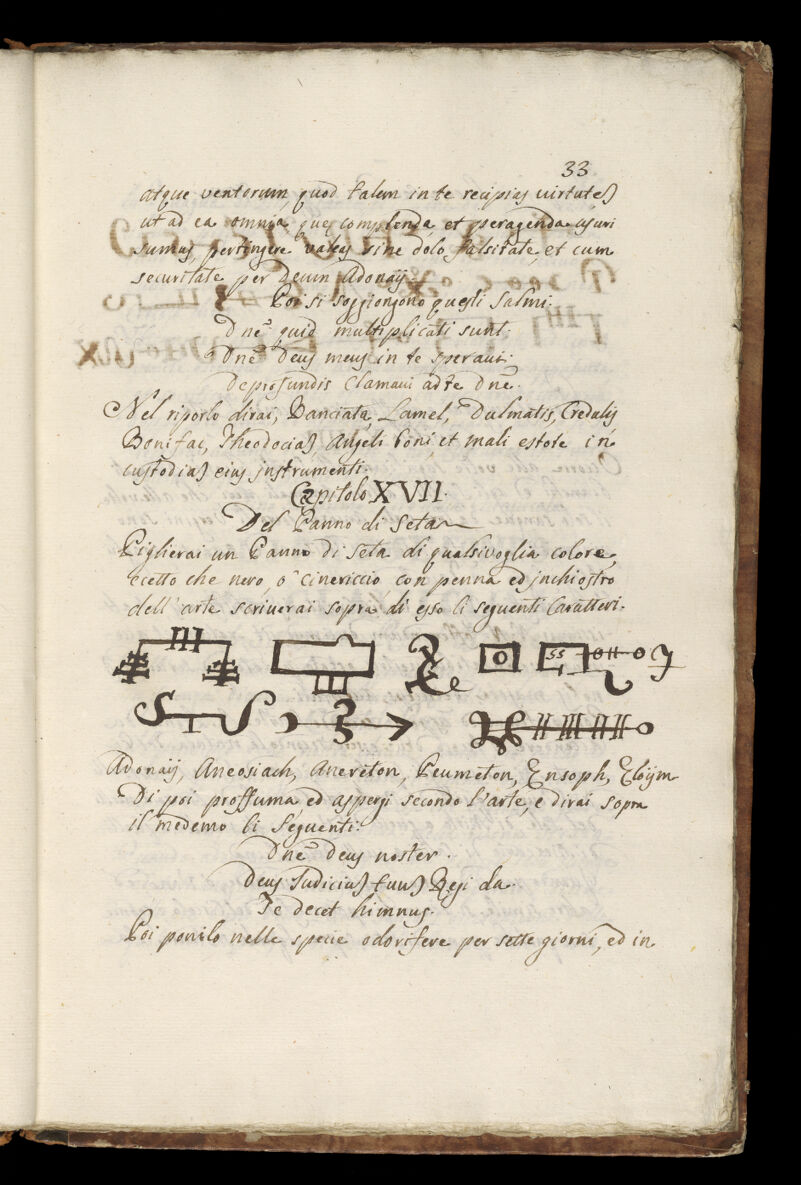 33
atque ventorum, quod talem in te recipias virtutes
ut ad ea omnia, que complenda, et peragenda usuri
sumus, pertingere valeas sine dolo, falsitate, et cum
securitate per Deum Adonaÿ.
Poi si soggiongono questi Salmi.
Dnē quid multiplicati sunt.
Dnē Deus meus in te speraui.
De profundis Clamaui ad te Dnē.
Nel riporlo dirai, Danciata, Lamel, Dulmatis, Credulis
Bonifac, Theodocias, Angeli boni, et mali estote in
custodias eius instrumenti.
Capitolo XVII.
Del Panno di Seta
Piglierai un Panno di Seta di qualsivoglia colore,
ecetto che nero, ò cinericcio, con penna ed inchiostro
dell'arte scriuerai sopra di esso li seguenti Caratteri.
Adonaÿ, Aneosiach, Anereton, Peumeton, Ensoph, Eloÿm
Di poi proffuma, ed aspergi secondo l'arte, e dirai sopra
il medemo li Seguenti.
Dnē Deus noster.
Deus Judicius tuus Regi da.
Te decet himnus.
Poi ponilo nelle specie odorifere per sette giorni, ed in